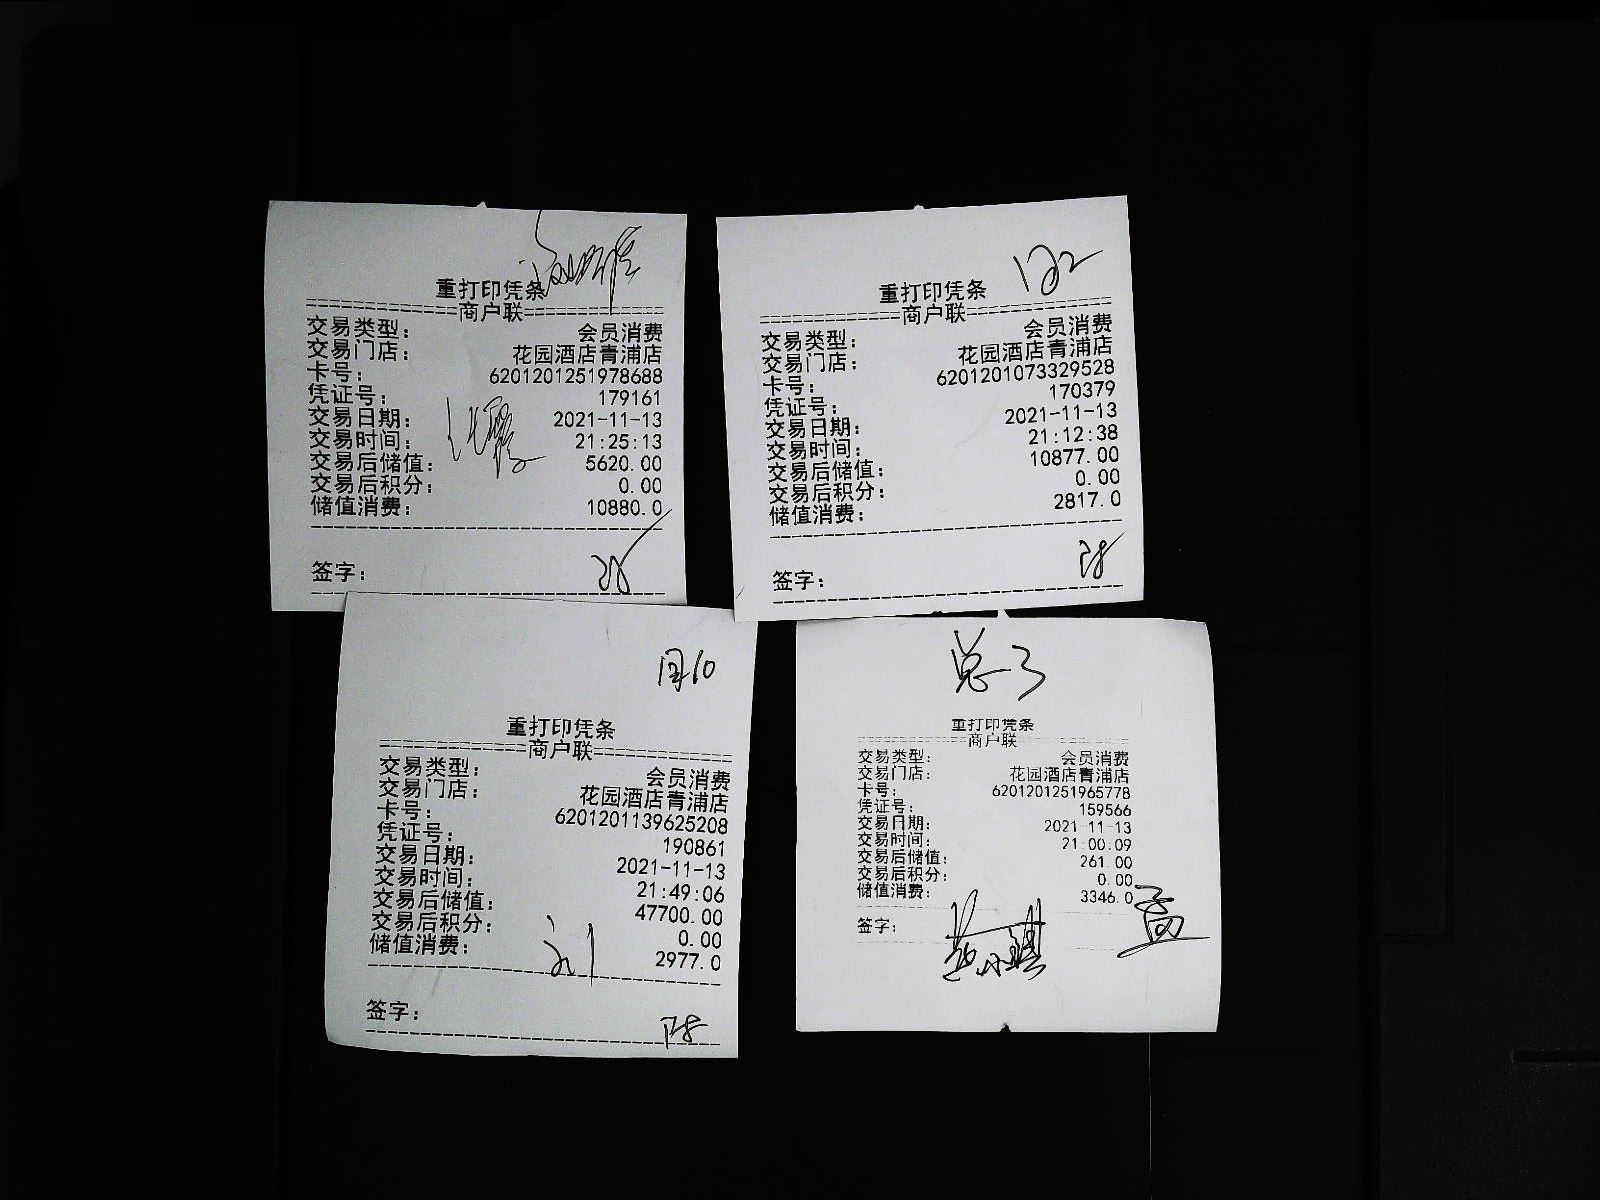 重打印凭条
商户联
交易类型: 会员消费
交易门店: 花园酒店青浦店
卡号: 6201201251978688
凭证号: 179161
交易日期: 2021-11-13
交易时间: 21:25:13
交易后储值: 5620.00
交易后积分: 0.00
储值消费: 10880.0
签字:
重打印凭条
商户联
交易类型: 会员消费
交易门店: 花园酒店青浦店
卡号: 6201201073329528
凭证号: 170379
交易日期: 2021-11-13
交易时间: 21:12:38
交易后储值: 10877.00
交易后积分: 0.00
储值消费: 2817.0
签字:
重打印凭条
商户联
交易类型: 会员消费
交易门店: 花园酒店青浦店
卡号: 6201201139625208
凭证号: 190861
交易日期: 2021-11-13
交易时间: 21:49:06
交易后储值: 47700.00
交易后积分: 0.00
储值消费: 2977.0
刘
签字:
总3
重打印凭条
商户联
交易类型: 会员消费
交易门店: 花园酒店青浦店
卡号: 6201201251965778
凭证号: 159566
交易日期: 2021-11-13
交易时间: 21:00:09
交易后储值: 261.00
交易后积分: 0.00
储值消费: 3346.0
签字: